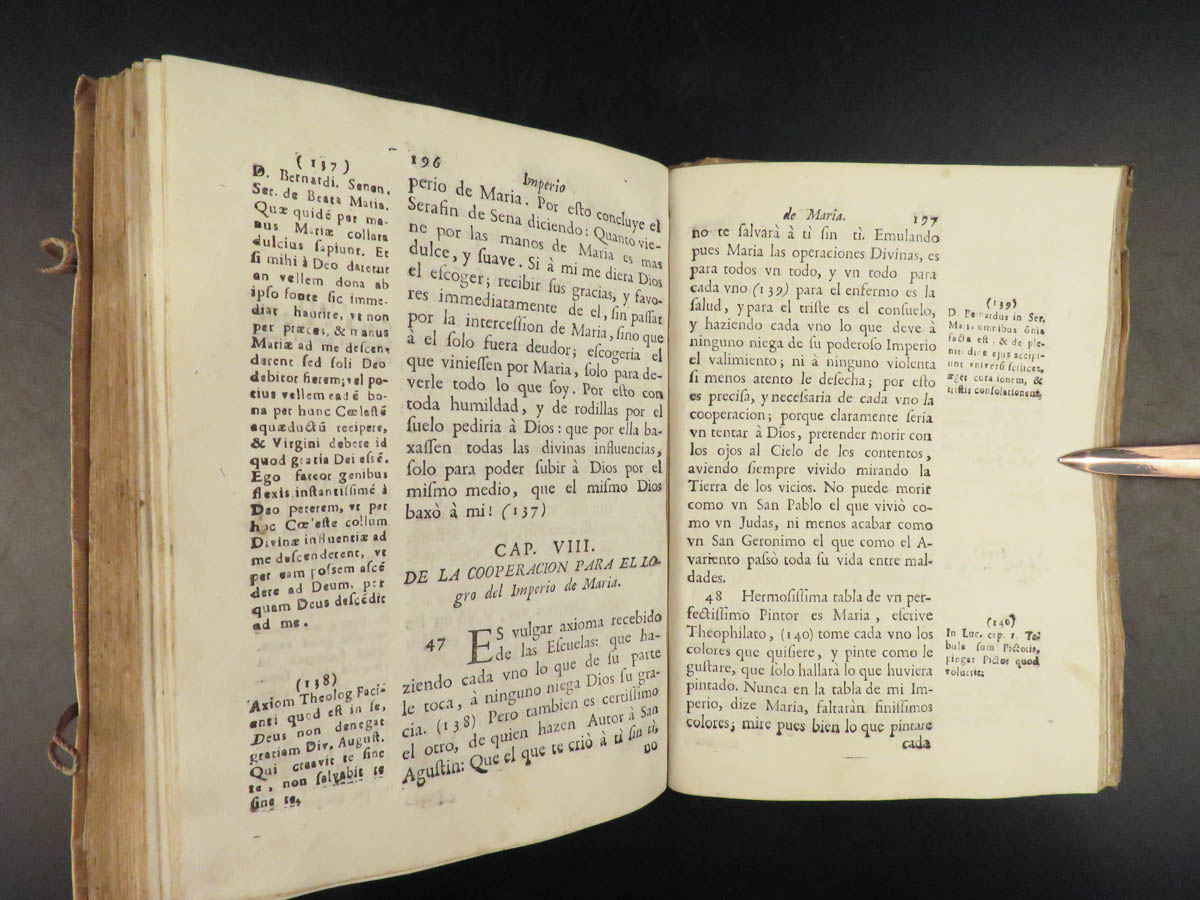 196
Imperio
(137)
D. Bernardi. Senen.
Ser. de Beata Maria.
Quæ quidē per ma-
nus Mariæ collata
dulcius sapiunt. Et
si mihi à Deo daretur
an vellem dona ab
ipso fonte sic imme-
diat haurire, vt non
per præces, & manus
Mariæ ad me descen-
derent sed soli Deo
debitor fierem; vel po-
tius vellem eadē bo-
na per hunc Cœlestē
aquæductū recipere,
& Virgini debere id
quod gratia Dei essē.
Ego fateor genibus
flexis instantissimé à
Deo peterem, vt per
hoc Cœleste collum
Divinæ influentiæ ad
me descenderent, vt
per eam possem ascē
dere ad Deum, per
quam Deus descēdit
ad me.
(138)
Axiom Theolog Faci-
enti quod est in se,
Deus non denegat
gratiam Div. August.
Qui creavit te sine
te, non salvabit te
sine te,
perio de Maria. Por esto concluye el
Serafin de Sena diciendo: Quanto vie-
ne por las manos de Maria es mas
dulce, y suave. Si à mi me diera Dios
el escoger; recibir sus gracias, y favo-
res immediatamente de el, sin passar
por la intercession de Maria, sino que
à el solo fuera deudor; escogeria el
que viniessen por Maria, solo para de-
verle todo lo que soy. Por esto con
toda humildad, y de rodillas por el
suelo pediria à Dios: que por ella ba-
xassen todas las divinas influencias,
solo para poder subir à Dios por el
mismo medio, que el mismo Dios
baxò à mi! (137)
CAP. VIII.
DE LA COOPERACION PARA EL LO-
gro del Imperio de Maria.
47 ES vulgar axioma recebido
de las Escuelas: que ha-
ziendo cada vno lo que de su parte
le toca, à ninguno niega Dios su gra-
cia. (138) Pero tambien es certissimo
el otro, de quien hazen Autor à San
Agustin: Que el que te criò à tì sin tì,
no
de Maria.
197
no te salvarà à tì sin tì. Emulando
pues Maria las operaciones Divinas, es
para todos vn todo, y vn todo para
cada vno (139) para el enfermo es la
salud, y para el triste es el consuelo,
y haziendo cada vno lo que deve à
ninguno niega de su poderoso Imperio
el valimiento; ni à ninguno violenta
si menos atento le desecha; por esto
es precisa, y necessaria de cada vno la
cooperacion; porque claramente seria
vn tentar à Dios, pretender morir con
los ojos al Cielo de los contentos,
aviendo siempre vivido mirando la
Tierra de los vicios. No puede morir
como vn San Pablo el que viviò co-
mo vn Judas, ni menos acabar como
vn San Geronimo el que como el A-
variento passò toda su vida entre mal-
dades.
48 Hermosissima tabla de vn per-
fectissimo Pintor es Maria, escrive
Theophilato, (140) tome cada vno los
colores que quisiere, y pinte como le
gustare, que solo hallarà lo que huviera
pintado. Nunca en la tabla de mi Im-
perio, dize Maria, faltaràn finissimos
colores; mire pues bien lo que pintare
cada
(139)
D. Bernardus in Ser.
Maria omnibus ōnia
facta est. & de ple-
nit:
ejus accipi-
unt vniversi scilicet,
æger curationem, &
tristis consolationem,
(140)
In Luc. cap. 1. Ta-
bula sum Pictoris,
pingat Pictor quod
voluerit;